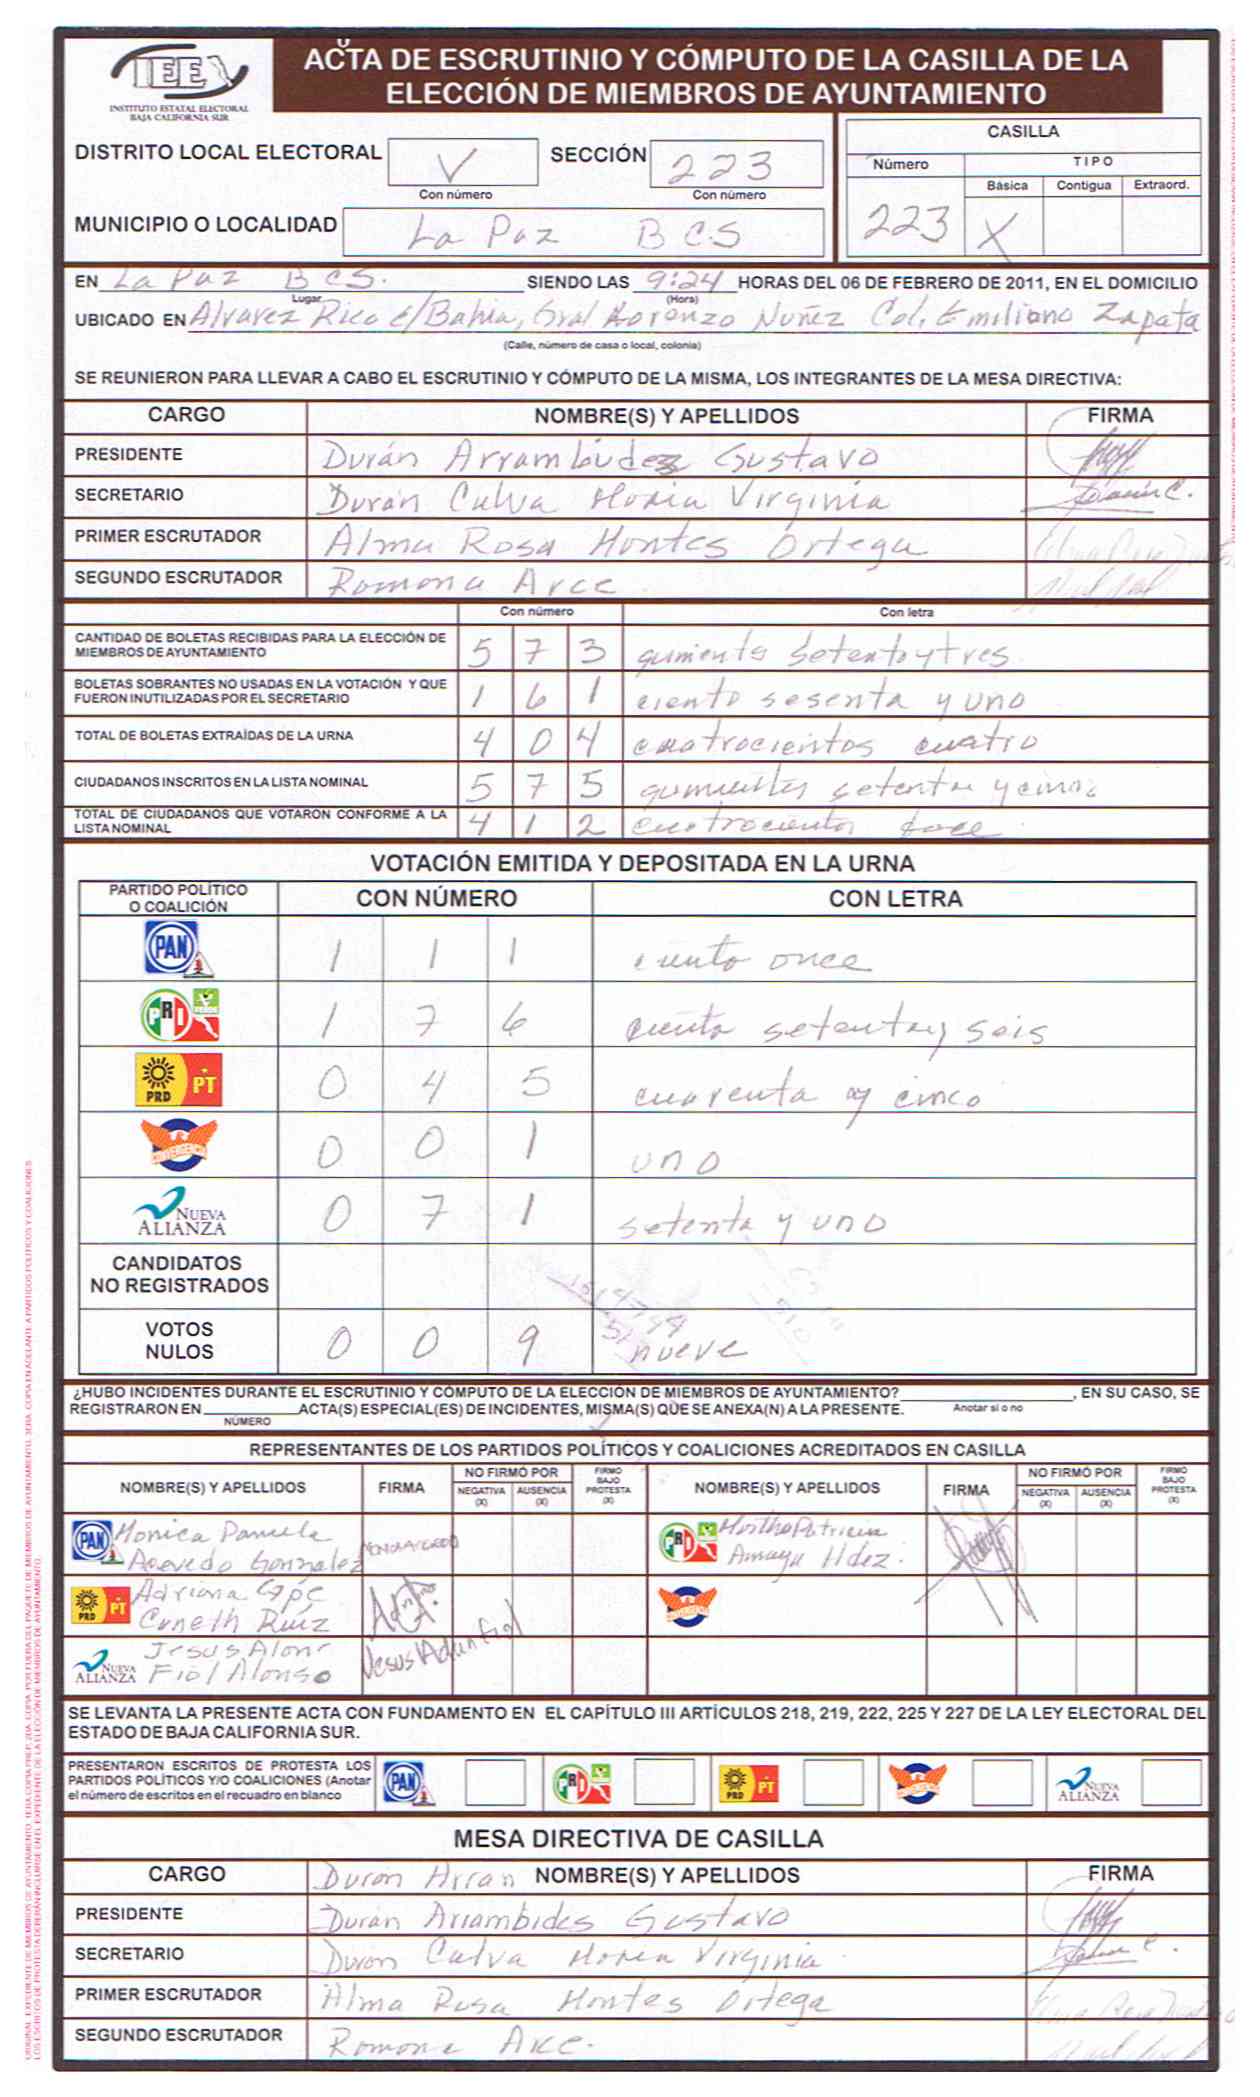 ACTA DE ESCRUTINIO Y CÓMPUTO DE LA CASILLA DE LA
ELECCIÓN DE MIEMBROS DE AYUNTAMIENTO
IEE
INSTITUTO ESTATAL ELECTORAL
BAJA CALIFORNIA SUR
DISTRITO LOCAL ELECTORAL V SECCIÓN 223
Con número Con número
MUNICIPIO O LOCALIDAD La Paz BCS
CASILLA
Número TIPO
Básica Contigua Extraord.
223 X
EN La Paz BCS. SIENDO LAS 9:24 HORAS DEL 06 DE FEBRERO DE 2011, EN EL DOMICILIO
Lugar (Hora)
UBICADO EN Alvarez Rico e/Bahia, Gral Lorenzo Nuñez Col. Emiliano Zapata
(Calle, número de casa o local, colonia)
SE REUNIERON PARA LLEVAR A CABO EL ESCRUTINIO Y CÓMPUTO DE LA MISMA, LOS INTEGRANTES DE LA MESA DIRECTIVA:
CARGO NOMBRE(S) Y APELLIDOS FIRMA
PRESIDENTE Durán Gustavo
SECRETARIO Durán Calva María Virginia
PRIMER ESCRUTADOR Alma Rosa Montes Ortega
SEGUNDO ESCRUTADOR Romona Arce
Con número Con letra
CANTIDAD DE BOLETAS RECIBIDAS PARA LA ELECCIÓN DE
MIEMBROS DE AYUNTAMIENTO 5 7 3 setenta y tres
BOLETAS SOBRANTES NO USADAS EN LA VOTACIÓN Y QUE
FUERON INUTILIZADAS POR EL SECRETARIO 1 6 1 ciento sesenta y uno
TOTAL DE BOLETAS EXTRAÍDAS DE LA URNA 4 0 4 cuatrocientos cuatro
CIUDADANOS INSCRITOS EN LA LISTA NOMINAL 5 7 5 setenta y cinco
TOTAL DE CIUDADANOS QUE VOTARON CONFORME A LA
LISTA NOMINAL 4 1 2 doce
VOTACIÓN EMITIDA Y DEPOSITADA EN LA URNA
PARTIDO POLÍTICO
O COALICIÓN CON NÚMERO CON LETRA
PAN 1 1 1 ciento once
PRI VERDE 1 7 6 ciento setenta y seis
PRD PT 0 4 5 cuarenta y cinco
CONVERGENCIA 0 0 1 uno
NUEVA
ALIANZA 0 7 1 setenta y uno
CANDIDATOS
NO REGISTRADOS
VOTOS
NULOS 0 0 9 nueve
¿HUBO INCIDENTES DURANTE EL ESCRUTINIO Y CÓMPUTO DE LA ELECCIÓN DE MIEMBROS DE AYUNTAMIENTO? , EN SU CASO, SE
Anotar si o no
REGISTRARON EN ACTA(S) ESPECIAL(ES) DE INCIDENTES, MISMA(S) QUE SE ANEXA(N) A LA PRESENTE.
NÚMERO
REPRESENTANTES DE LOS PARTIDOS POLÍTICOS Y COALICIONES ACREDITADOS EN CASILLA
NOMBRE(S) Y APELLIDOS FIRMA NO FIRMÓ POR FIRMO BAJO PROTESTA (X) NOMBRE(S) Y APELLIDOS FIRMA NO FIRMÓ POR FIRMO BAJO PROTESTA (X)
NEGATIVA (X) AUSENCIA (X) NEGATIVA (X) AUSENCIA (X)
PAN Monica Pamela
Acevedo Gonzalez
PRI Martha Patricia
Amaya Hdez.
PRD PT Adriana
Ruiz
CONVERGENCIA
NUEVA ALIANZA Jesus
Fiol Alonso
SE LEVANTA LA PRESENTE ACTA CON FUNDAMENTO EN EL CAPÍTULO III ARTÍCULOS 218, 219, 222, 225 Y 227 DE LA LEY ELECTORAL DEL
ESTADO DE BAJA CALIFORNIA SUR.
PRESENTARON ESCRITOS DE PROTESTA LOS
PARTIDOS POLÍTICOS Y/O COALICIONES (Anotar
el número de escritos en el recuadro en blanco
PAN PRI PRD PT CONVERGENCIA NUEVA ALIANZA
MESA DIRECTIVA DE CASILLA
CARGO Durán Arran NOMBRE(S) Y APELLIDOS FIRMA
PRESIDENTE Durán Arrambides Gustavo
SECRETARIO Durán Calva María Virginia
PRIMER ESCRUTADOR Alma Rosa Montes Ortega
SEGUNDO ESCRUTADOR Romona Arce.